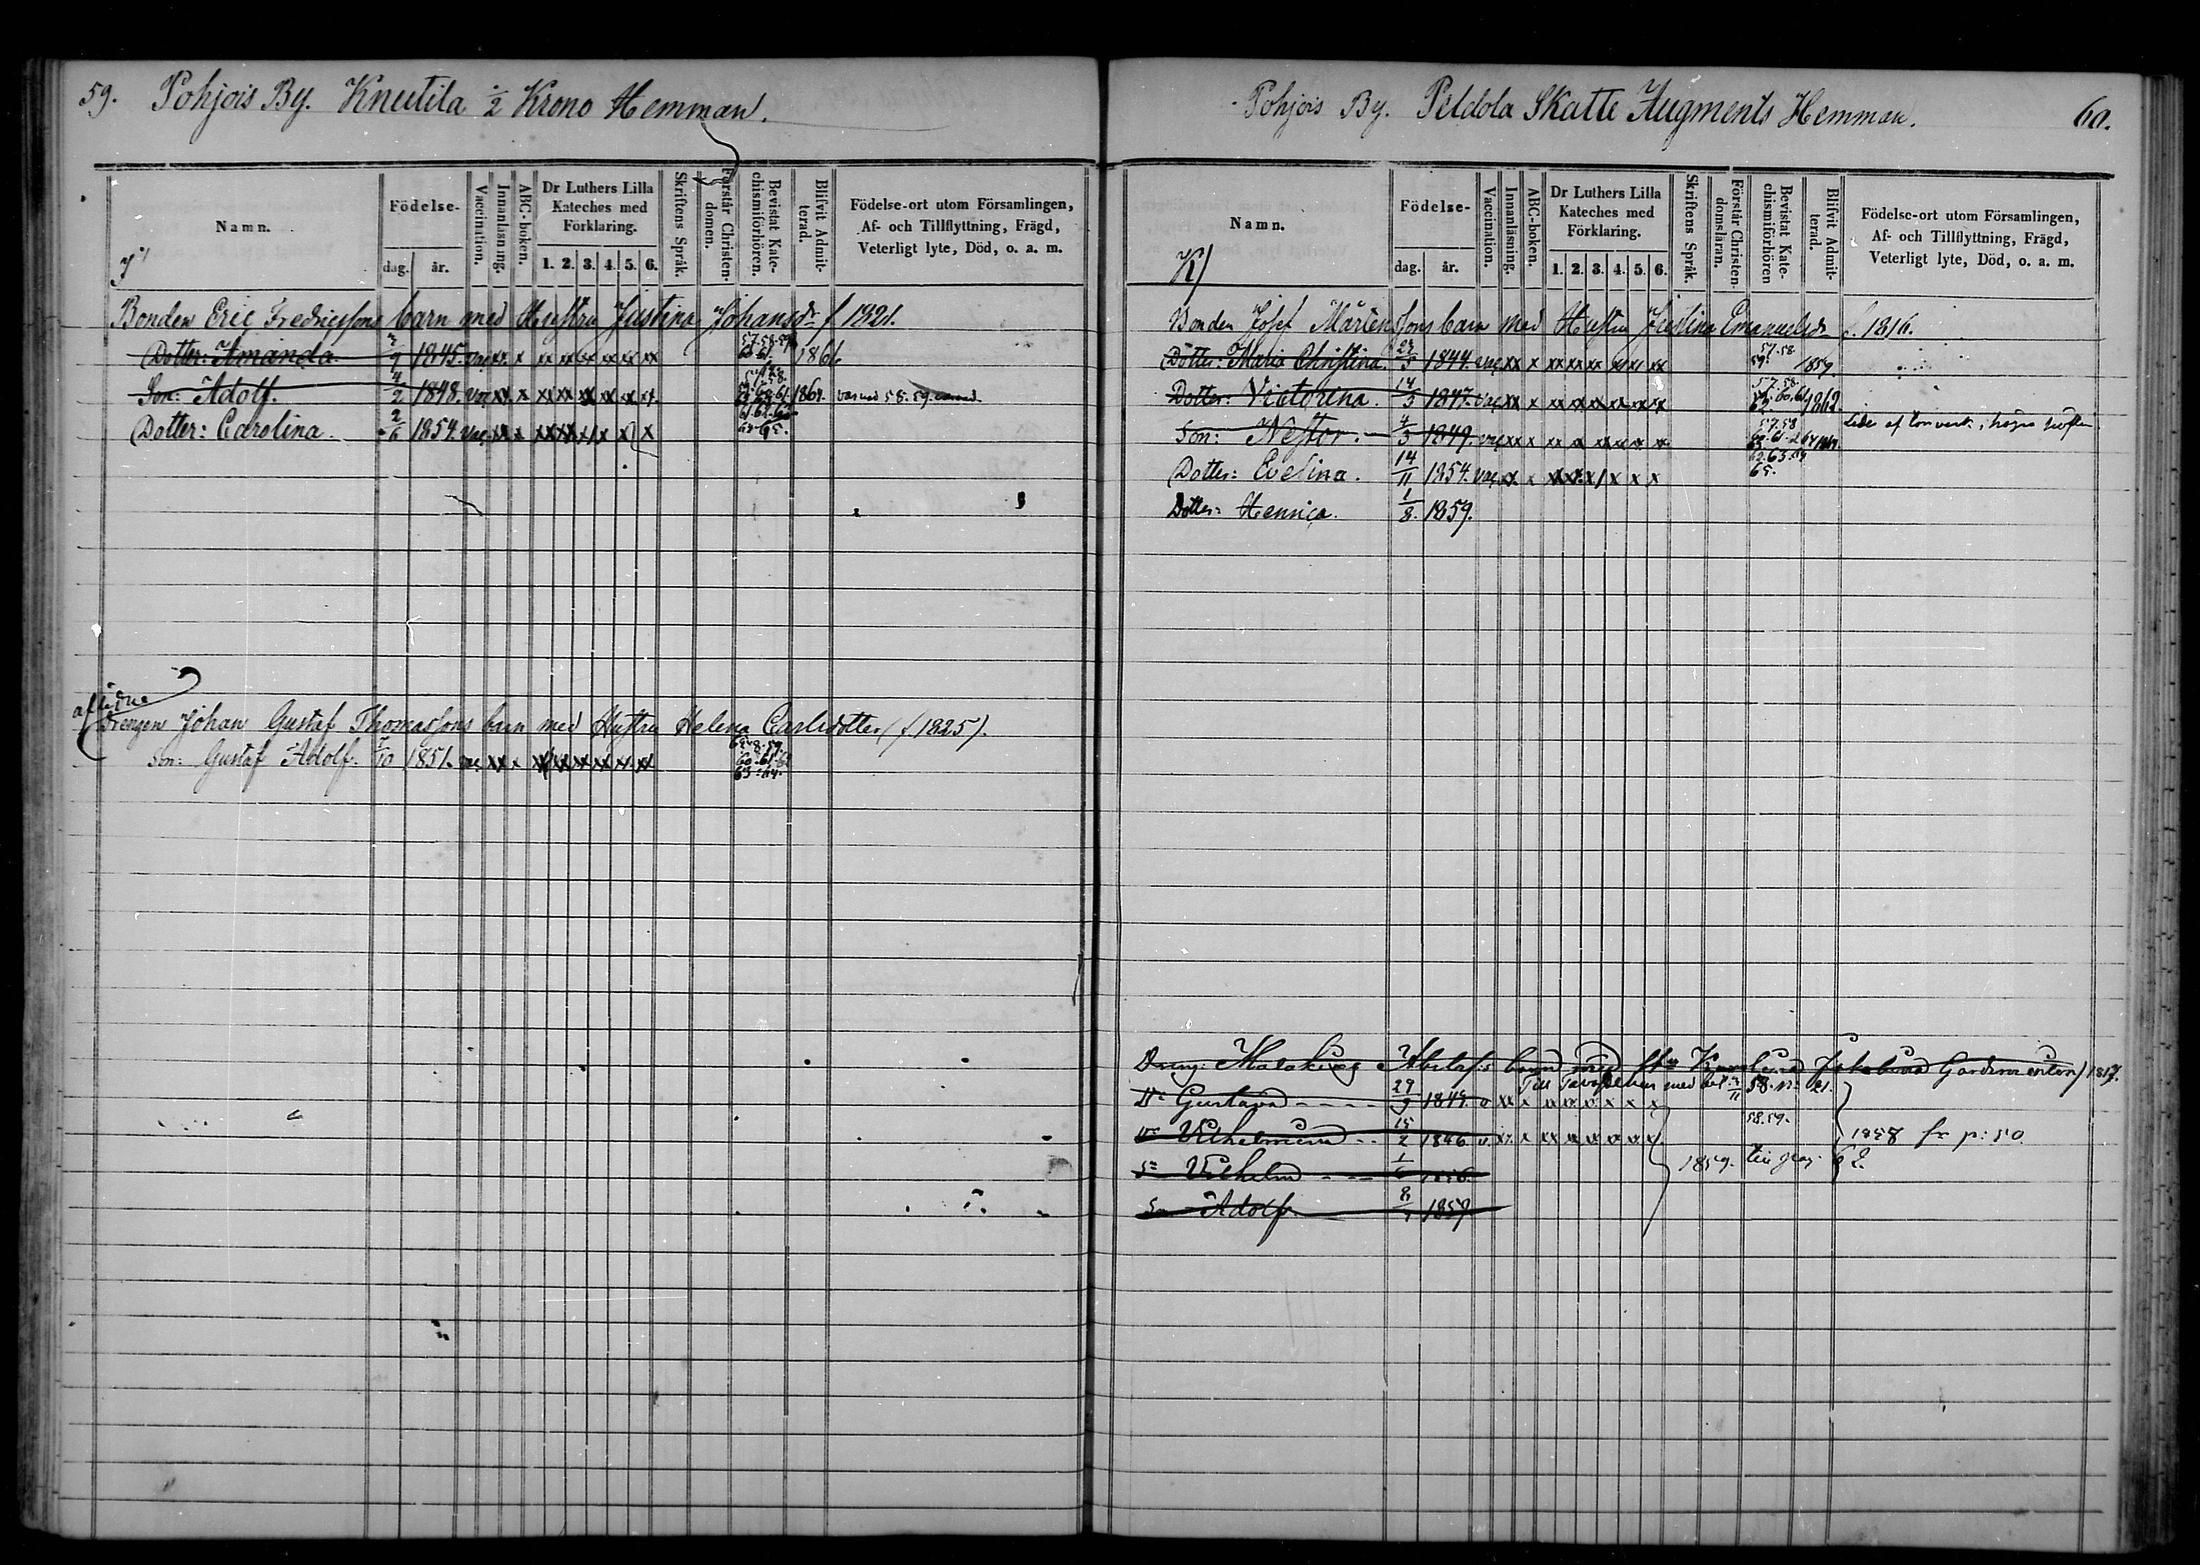 59. Pohjois By. Knutila 1/2 Krono Hemman.
Namn.
Födelse-
dag. år.
Vaccination.
Innanläsning.
ABC-boken.
Dr Luthers Lilla Kateches med Förklaring.
1. 2. 3. 4. 5. 6.
Skriftens Språk.
Förstår Christen-domen.
Bevistat Kate-chismiförhören.
Blifvit Admit-terad.
Födelse-ort utom Församlingen,
Af- och Tillflyttning, Frägd,
Veterligt lyte, Död, o. a. m.
Bonden Eric Fredricssons barn med Hustru Justina Johansdr f 1821.
Dotter: Amanda. 1845. vac xx x xx xx xx xx xx xx 57.58.59 60.61. 1861.
Son: Adolf. 4/2 1848. vac xx x xx xx x xx xx xx 57.58. 1864.
Dotter: Carolina. 2/6 1854. vac xx x xx xx x x x x
aflidne
Drengen Johan Gustaf Thomassons barn med Hustru Helena Carlsdotter (f 1825).
Son: Gustaf Adolf. /10 1851. vac xx x xx xx xx xx xx xx 60.61.62 63.64.
Pohjois By. Peldola Skatte Augments Hemman. 60.
Namn.
K)
Födelse-
dag. år.
Vaccination.
Innanläsning.
ABC-boken.
Dr Luthers Lilla Kateches med Förklaring.
1. 2. 3. 4. 5. 6.
Skriftens Språk.
Förstår Christen-domsläran.
Bevistat Kate-chismiförhören
Blifvit Admit-terad.
Födelse-ort utom Församlingen,
Af- och Tillflyttning, Frägd,
Veterligt lyte, Död, o. a. m.
Bonden Josef Mårtenssons barn med Hustru Justina Emanuelsdr f. 1816.
Dotter: Maria Christina. 1844. vac xx x xx xx xx xx xx xx 57.58. 59. 1859.
Dotter: Victorina. 14/3 1847. vac xx x 57.58. 1862.
Son: Nestor. 4/3 1849. vac xx x 57.58
Dotter: Evelina. 14/11 1854. vac xx x 62.63.64 65.
Dotter: Henrica. 1/8. 1859.
Dreng: barn med 1817.
Till Tavastehus med bet. 58. n: 21.
Dr Gustava 29/3 1849. v xx x
Dr Vilhelmina 15/2 1846. v. xx x 58.59. 1858 fr p: 50.
Sn Vilhelm 1/6 1856. 1859. till pag. 62.
Sn Adolf 1859